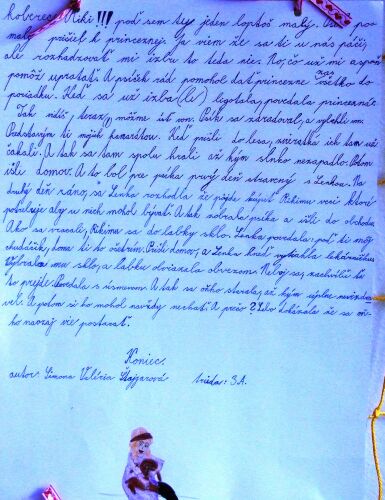 koberec. Riki!!! poď sem ty jeden loptoš malý. Psík po-
maly prišiel k princeznej. Ja viem že sa ti u nás páči,
ale rozhadzovať mi izbu to teda nie. No, čo už mi aspoň
pomôž upratať. A psíček rád pomohol dať princezne zas všetko do
poriadku. Keď sa už izba (le) ligotala, povedala princezná:
Tak vidíš teraz môžme ísť von. Psík sa zaradoval, a vybehli von.
Predstavím ti mojich kamarátov. Keď prišli do lesa, zvieratká ich tam už
čakali. A tak sa tam spolu hrali až kým slnko nezapadlo. Potom
išli domov. A to bol pre psíka prvý deň strávený s Lenkou. Na
druhý deň ráno, sa Lenka rozhodla že pôjde kúpiť Rikimu veci ktoré
potrebuje aby u nich mohol bývať. A tak zobrala psíka a išli do obchodu.
Ako sa vracali, Rikimu sa do labky sklo. Lenka povedala: poď ti môj
chudáčik, doma ti to ošetrím. Prišli domov, a Lenka hneď vytiahla lekárničku
Vybrala mu sklo, a labku obviazala obväzom. Neboj sa, zachvíľu ti
to prejde. Povedala s úsmevom. A tak sa oňho starala, až kým úplne
vel. A potom si ho mohol navždy nechať. A prečo? Lebo dokázala že sa o
ňho naozaj vie postarať.
Koniec.
autor: Simona Valéria trieda: 3.A.